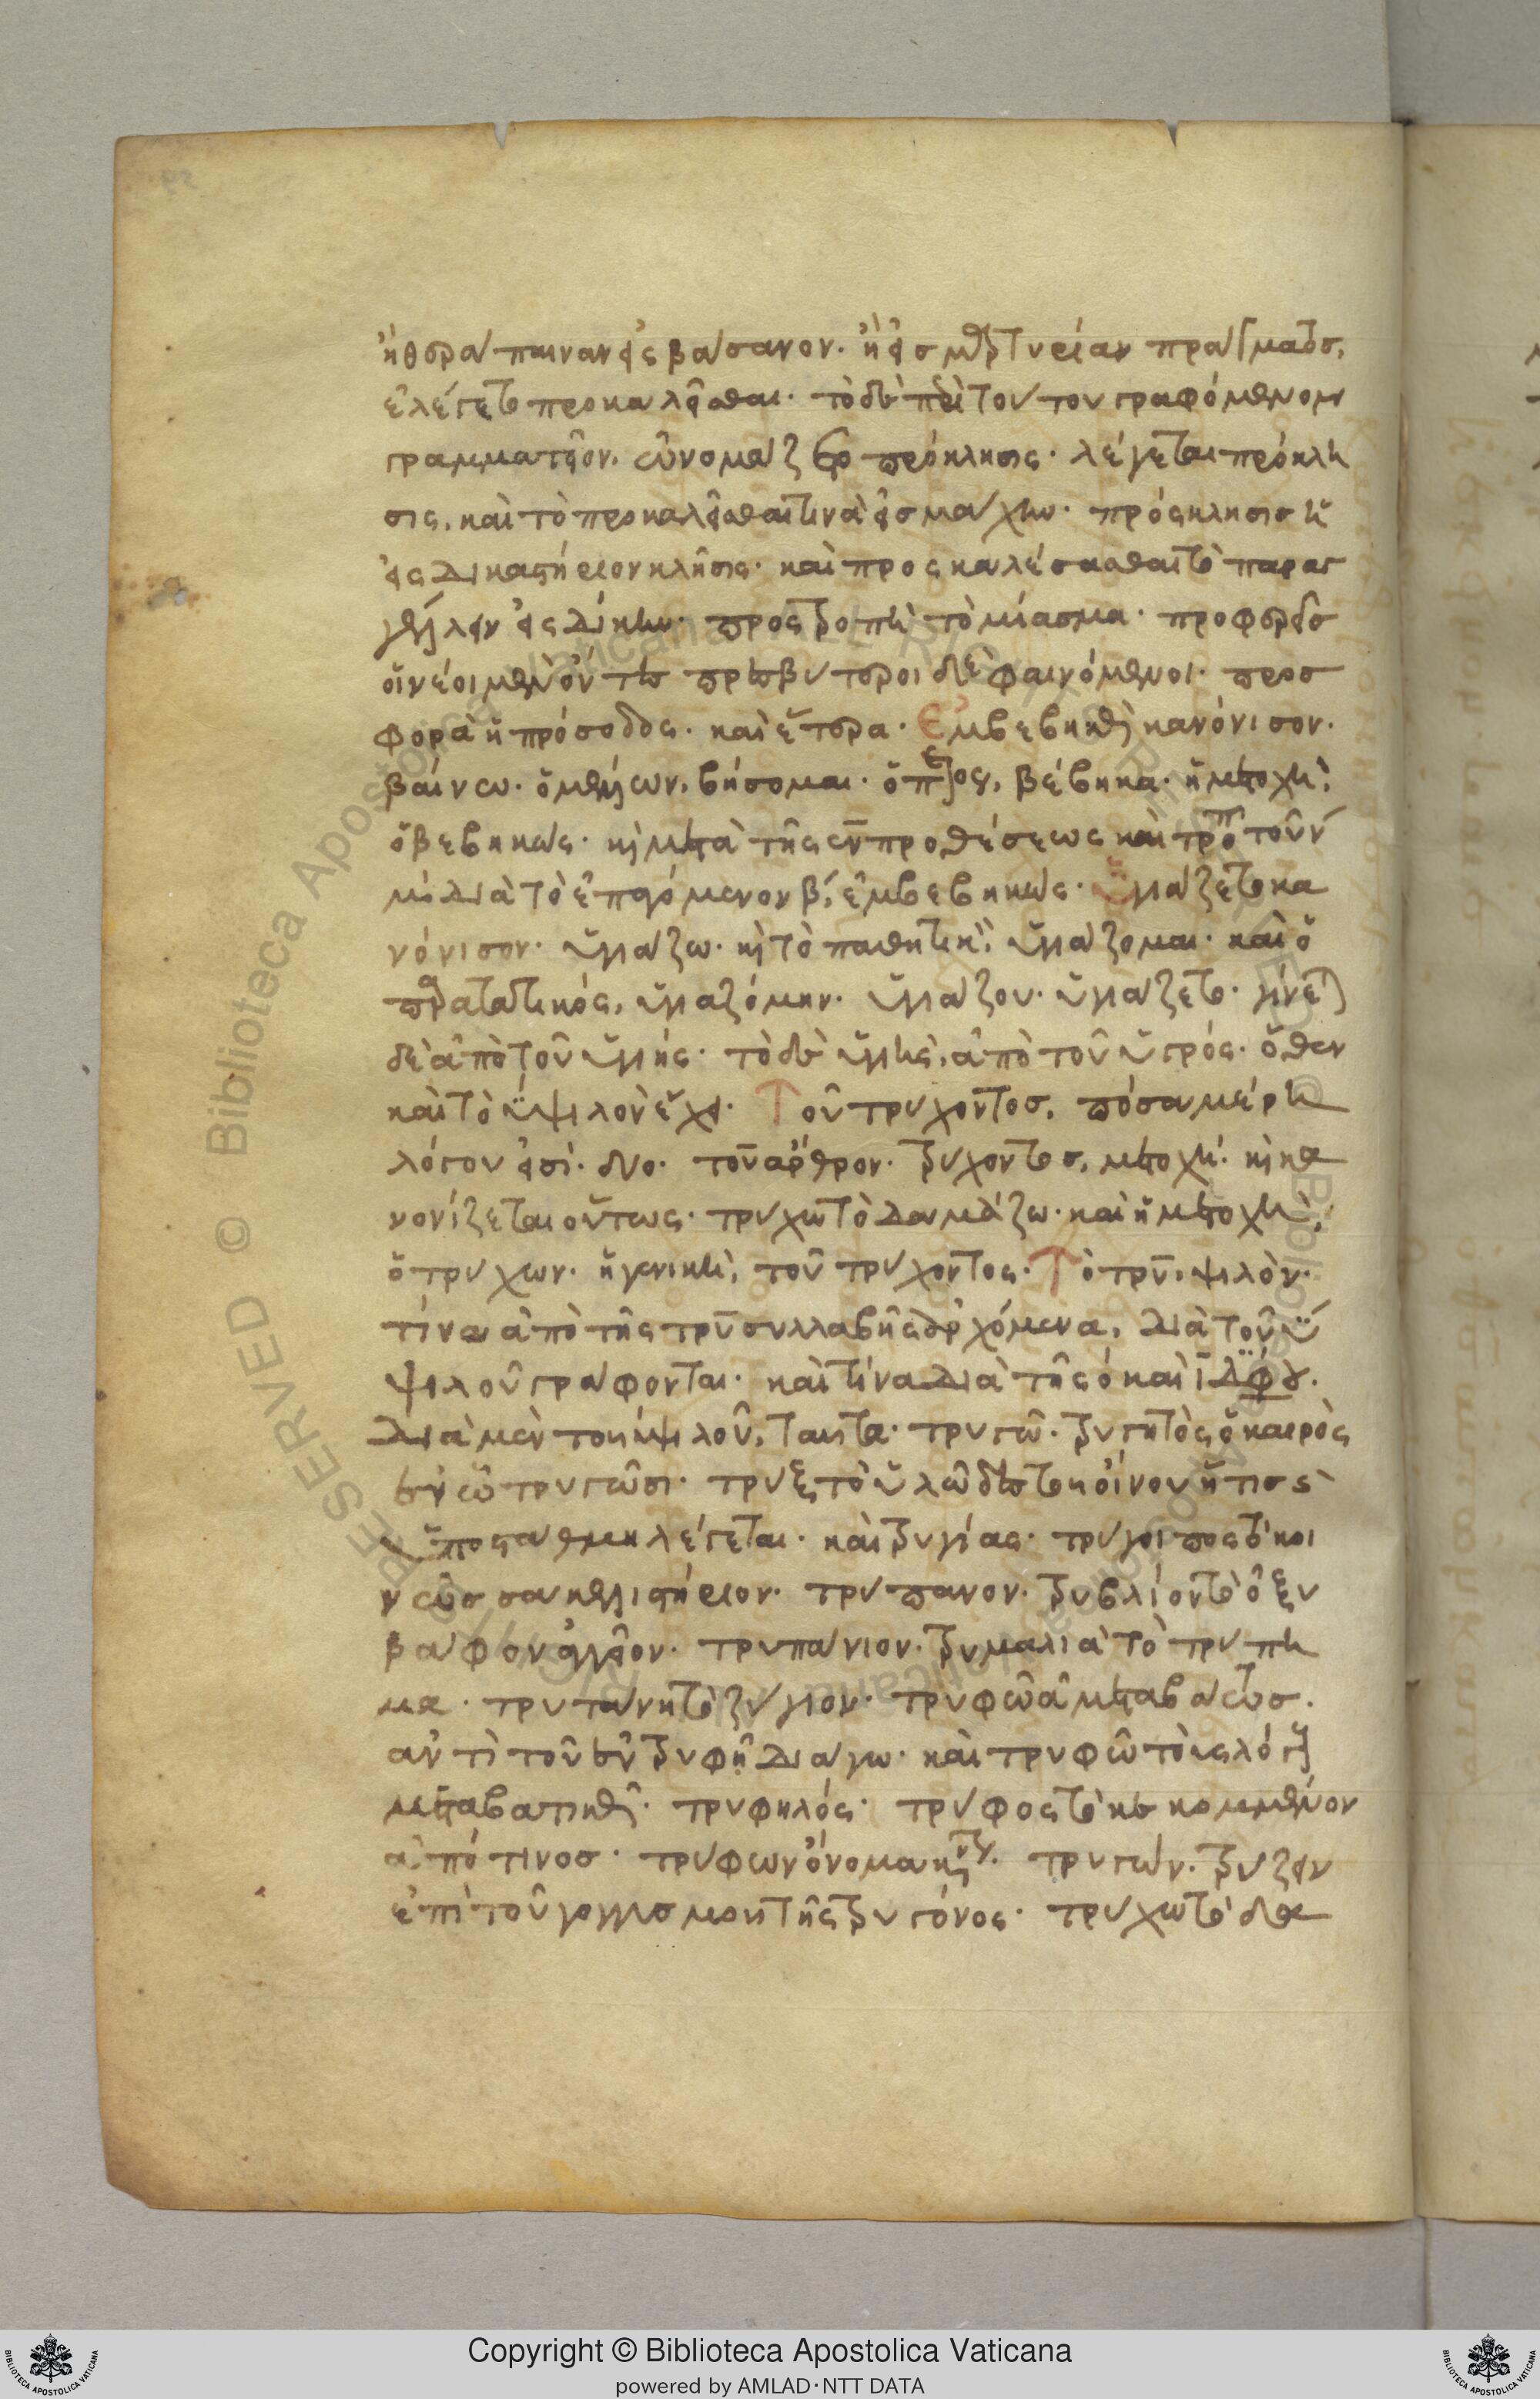 ἢ θεράπαιναν εἰς βάσανον. ἢ εἰς μαρτυρίαν πράγματος,
ἐλέγετο προκαλεῖσθαι. τὸ δὲ περὶ τούτου γραφόμενον
γραμματεῖον, ὠνομάζετο πρόκλησις. λέγεται πρόκλη
σις, καὶ τὸ προκαλεῖσθαί τινα εἰς μάχην. πρόςκλησις ἡ
εἰς δικαστήριον κλῆσις. καὶ προςκαλέσασθαι τὸ παραγ
γεῖλαι εἰς δίκην. προςτροπὴ τὸ μίασμα. προφερεῖς
οἱ νέοι μὲν ὄντες πρεσβύτεροι δὲ φαινόμενοι. προσ
φορὰ ἡ πρόσοδος. καὶ ἕτερα. Ἐμβεβηκὼς κανόνισον.
βαίνω. ὁ μέλλων, βήσομαι. ὁ παρακείμενος, βέβηκα. ἡ μετοχὴ,
ὁ βεβηκώς. καὶ μετὰ τῆς ἐν προθέσεως καὶ τροπῇ τοῦ ν
μ διὰ τὸ ἐπαγόμενον β, ἐμβεβηκώς. ὑγιάζετο κα
νόνισον. ὑγιάζω. καὶ τὸ παθητικὸν, ὑγιάζομαι. καὶ ὁ
παρατατικός, ὑγιαζόμην. ὑγιάζου. ὑγιάζετο. γίνεται
δὲ ἀπὸ τοῦ ὑγιής. τὸ δὲ ὑγιὴς, ἀπὸ τοῦ ὑγρός. ὅθεν
καὶ τὸ ϋψιλὸν ἔχει. Τοῦ τρύχοντος, πόσα μέρη
λόγου εἰσί. δύο. τοῦ ἄρθρον. τρύχοντος, μετοχή. καὶ κα
νονίζεται οὕτως. τρύχω τὸ δαμάζω. καὶ ἡ μετοχὴ,
ὁ τρύχων. ἡ γενικὴ, τοῦ τρύχοντος. Τὸ τρυ, ψιλόν.
τίνα ἀπὸ τῆς τρυ συλλαβῆς ἀρχόμενα, διὰ τοῦ ϋ
ψιλοῦ γράφονται. καὶ τίνα διὰ τῆς ὀ καὶ ϊ διφθόγγου.
διὰ μὲν τοῦ ϋψιλοῦ, ταῦτα. τρυγῶ. τρυγητὸς ὁ καιρὸς
ἐν ᾧ τρυγῶσι. τρὺξ τὸ ὑλῶδες τοῦ οἴνου ἥτις
ὑποστάθμη λέγεται. καὶ τρυγίας. τρύγοιπος τὸ κοι
νῶς σακκελιστήριον. τρύπανον. τρυβλίον τὸ ὀξυ
βάφον ἀγγεῖον. τρυπάνιον. τρυμαλιὰ τὸ τρύπη
μα. τρυτάνη τὸ ζύγιον. τρυφῶ ἀμεταβάτως.
ἀντὶ τοῦ ἐν τρυφῇ διάγω. καὶ τρυφῶ τοῖς λόγοις
μεταβατικὸν. τρυφηλός. τρύφος τὸ κεκομμένον
ἀπό τινος. τρύφων ὄνομα κύριον. τρυγών. τρύζειν
ἐπὶ τοῦ γογγυσμοῦ τῆς τρυγόνος. τρύχω τὸ δα